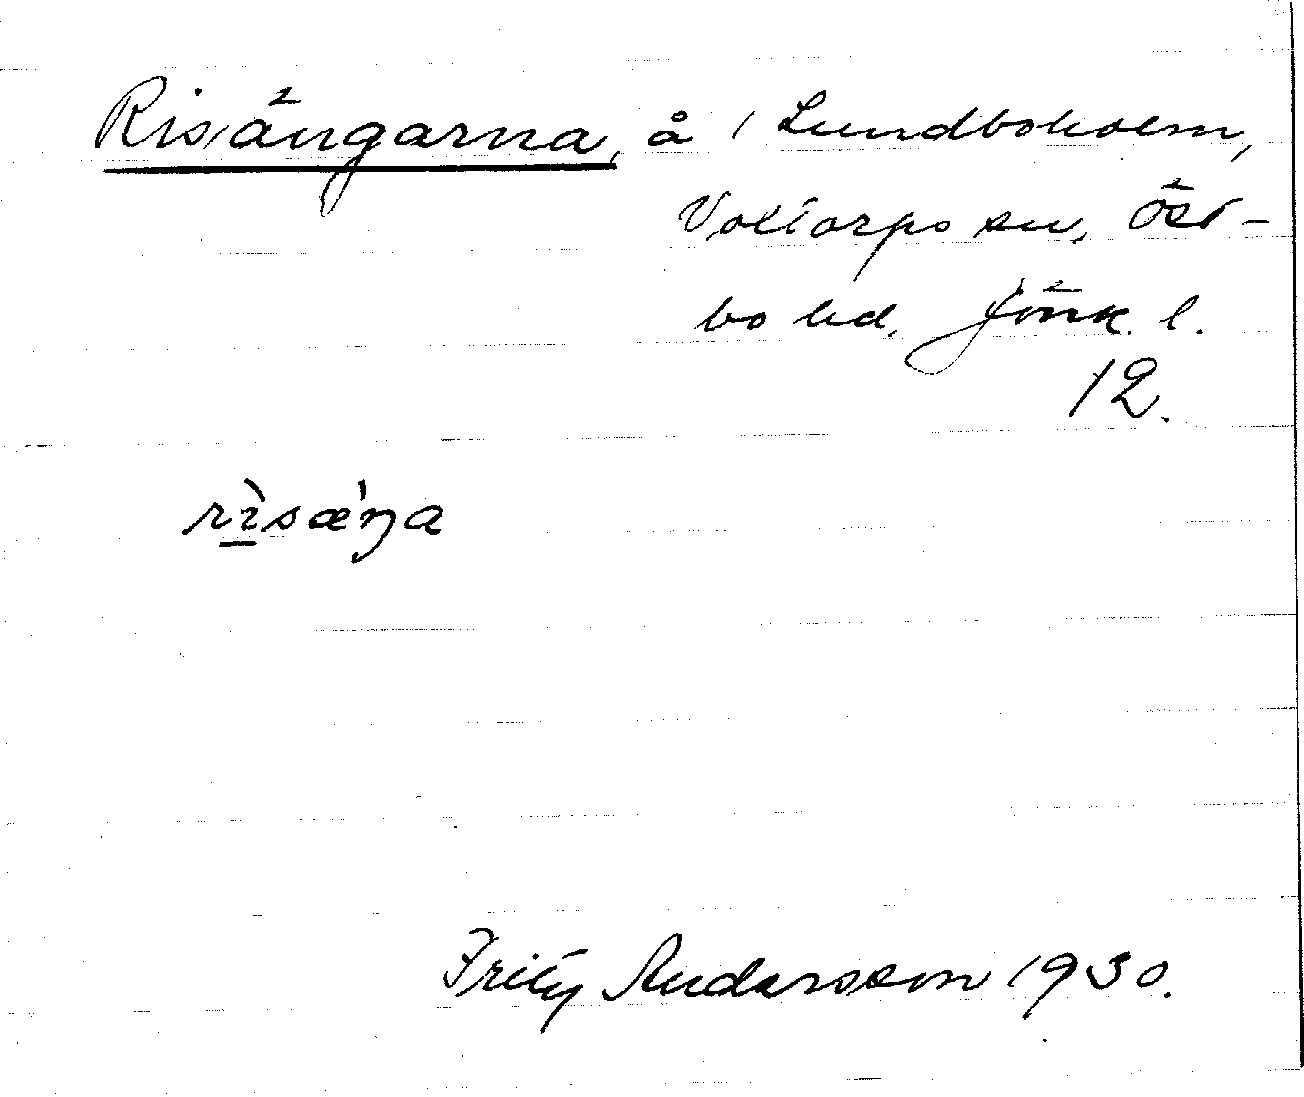 Risängarna, å / Lundboholm,
Voxtorps sn, Öst-
bo hd, Jönk. l.
12.
rìsæ'ŋa
Fritz Andersson 1930.